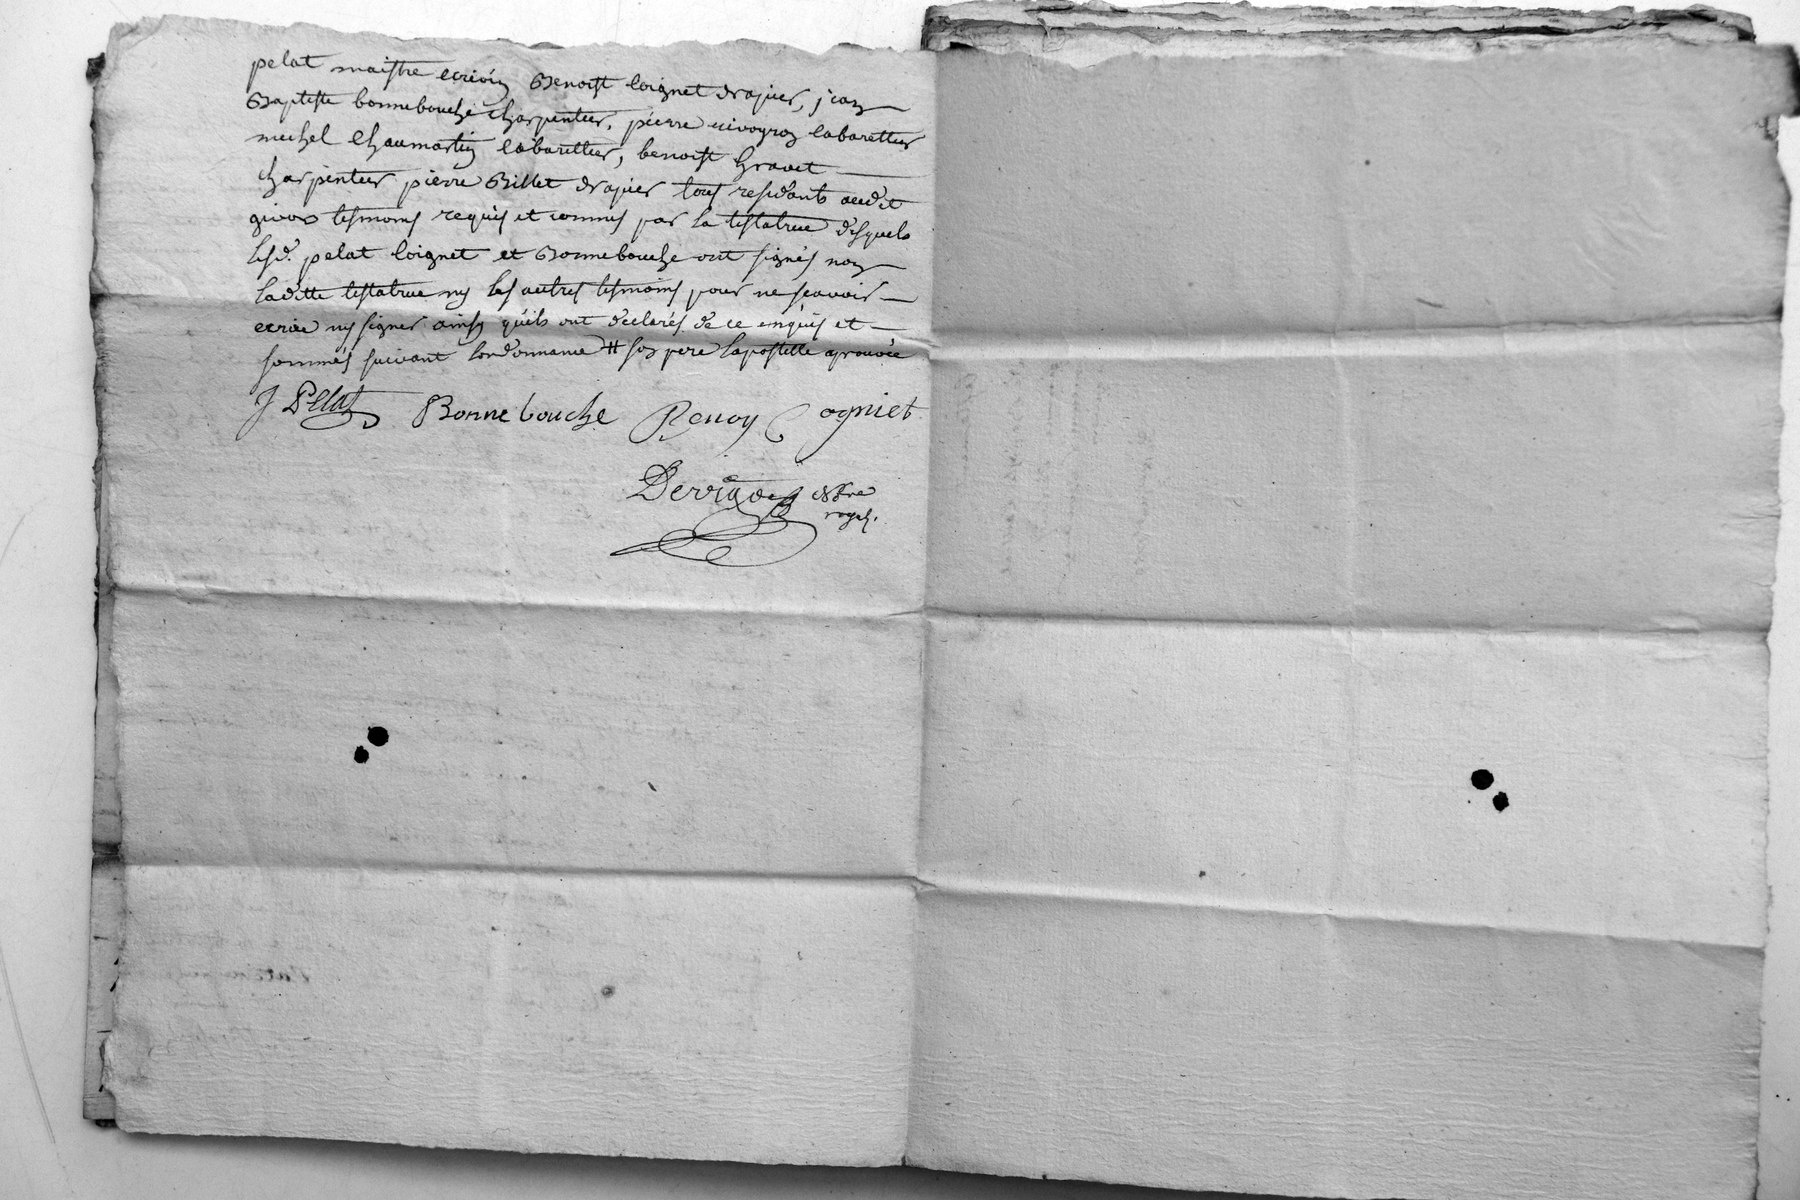 pelat maistre ecrivin Benoist Coignet drapier, jean
Baptiste bonnebouche charpentier, pierre vivoyron cabarettier
michel Chaumartin cabarettier, benoist Gravet
charpentier pierre Billet drapier tous residants audit
givors tesmoins requis et connus par la testatrice desquels
lesd. pelat Coignet et Bonnebouche ont signés non
laditte testatrice ny les autres tesmoins pour ne scavoir
ecrire ny signer ainsy quils ont declarés de ce enquis et
sommés suivant lordonnance # son pere lapostille aprouvée
J Pelat Bonnebouche Benoy Cogniet
notre
royal.